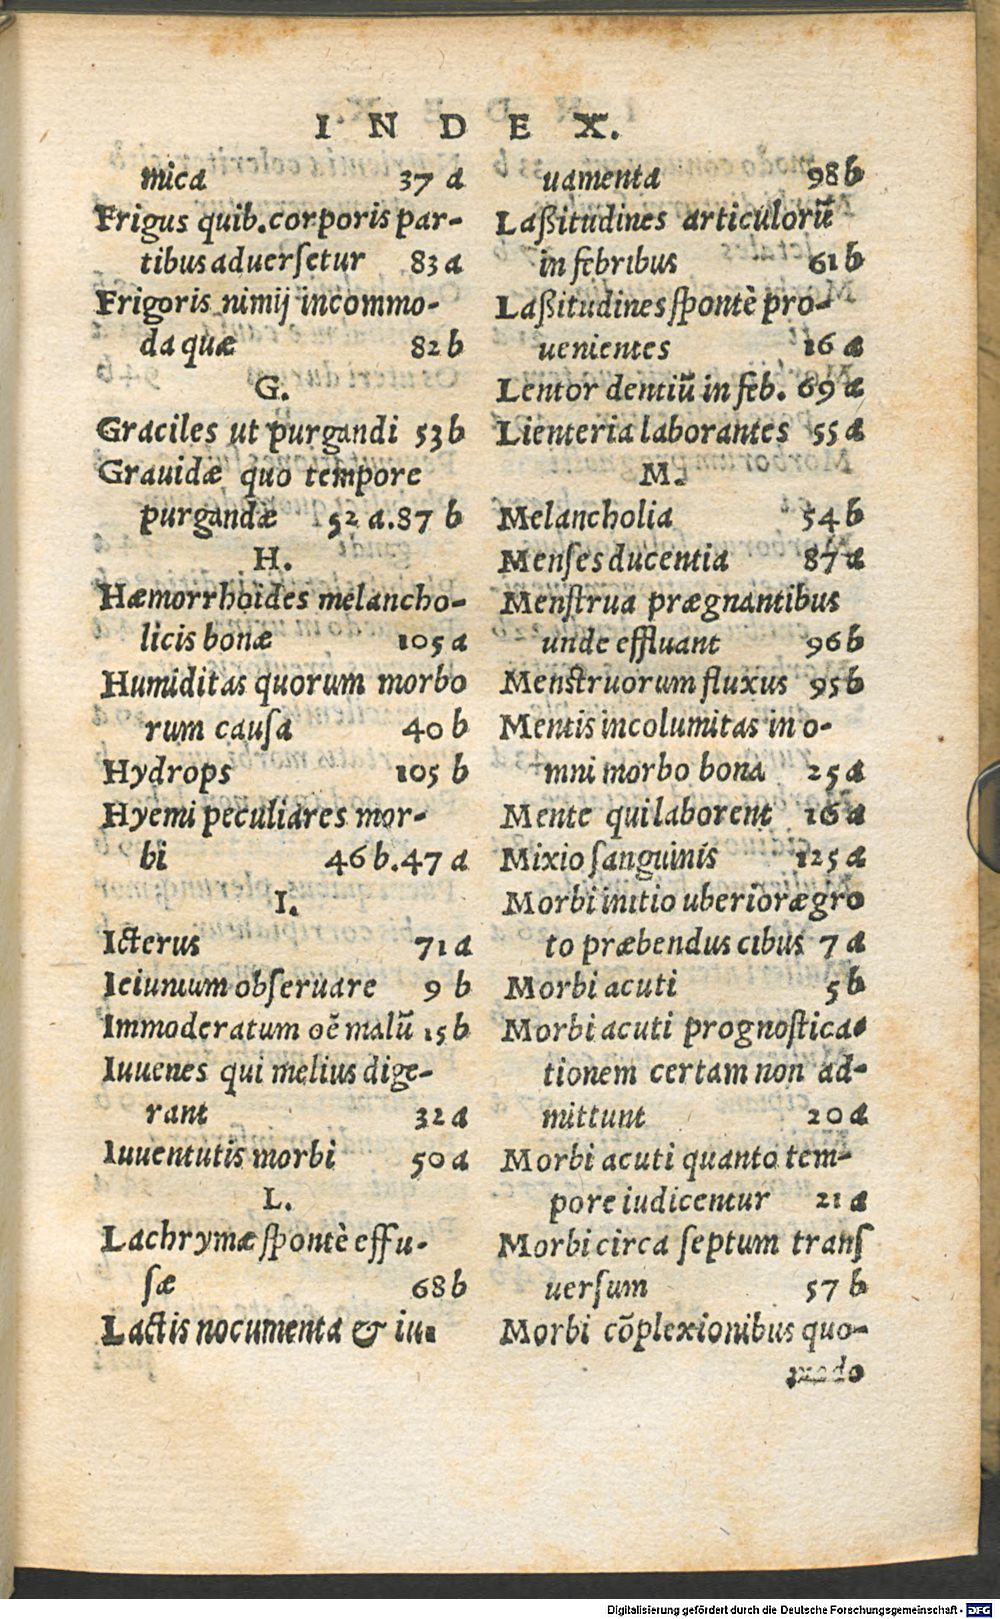 INDEX.
mica 37 a
Frigus quib. corporis par-
tibus aduerſetur 83 a
Frigoris nimij incommo-
da quæ 82 b
G.
Graciles ut purgandi 53 b
Grauidæ quo tempore
purgandæ 52 a. 87 b
H.
Hæmorrhoides melancho-
licis bonæ 105 a
Humiditas quorum morbo
rum cauſa 40 b
Hydrops 105 b
Hyemi peculiares mor-
bi 46 b. 47 a
I.
Icterus 71 a
Ieiunium obſeruare 9 b
Immoderatum oē malū 15 b
Iuuenes qui melius dige-
rant 32 a
Iuuentutis morbi 50 a
L.
Lachrymæ ſpontè effu-
ſæ 68 b
Lactis nocumenta & iu-
uamenta 98 b
Laßitudines articulorū
in febribus 61 b
Laßitudines ſpontè pro-
uenientes 16 a
Lentor dentiū in feb. 69 a
Lienteria laborantes 55 a
M.
Melancholia 54 b
Menſes ducentia 87 a
Menſtrua prægnantibus
unde effluant 96 b
Menſtruorum fluxus 95 b
Mentis incolumitas in o-
mni morbo bona 25 a
Mente qui laborent 16 a
Mixio ſanguinis 125 a
Morbi initio uberior ægro
to præbendus cibus 7 a
Morbi acuti 5 b
Morbi acuti prognoſtica-
tionem certam non ad-
mittunt 20 a
Morbi acuti quanto tem-
pore iudicentur 21 a
Morbi circa ſeptum tranſ
uerſum 57 b
Morbi cōplexionibus quo-
modo
Digitalisierung gefördert durch die Deutsche Forschungsgemeinschaft - DFG